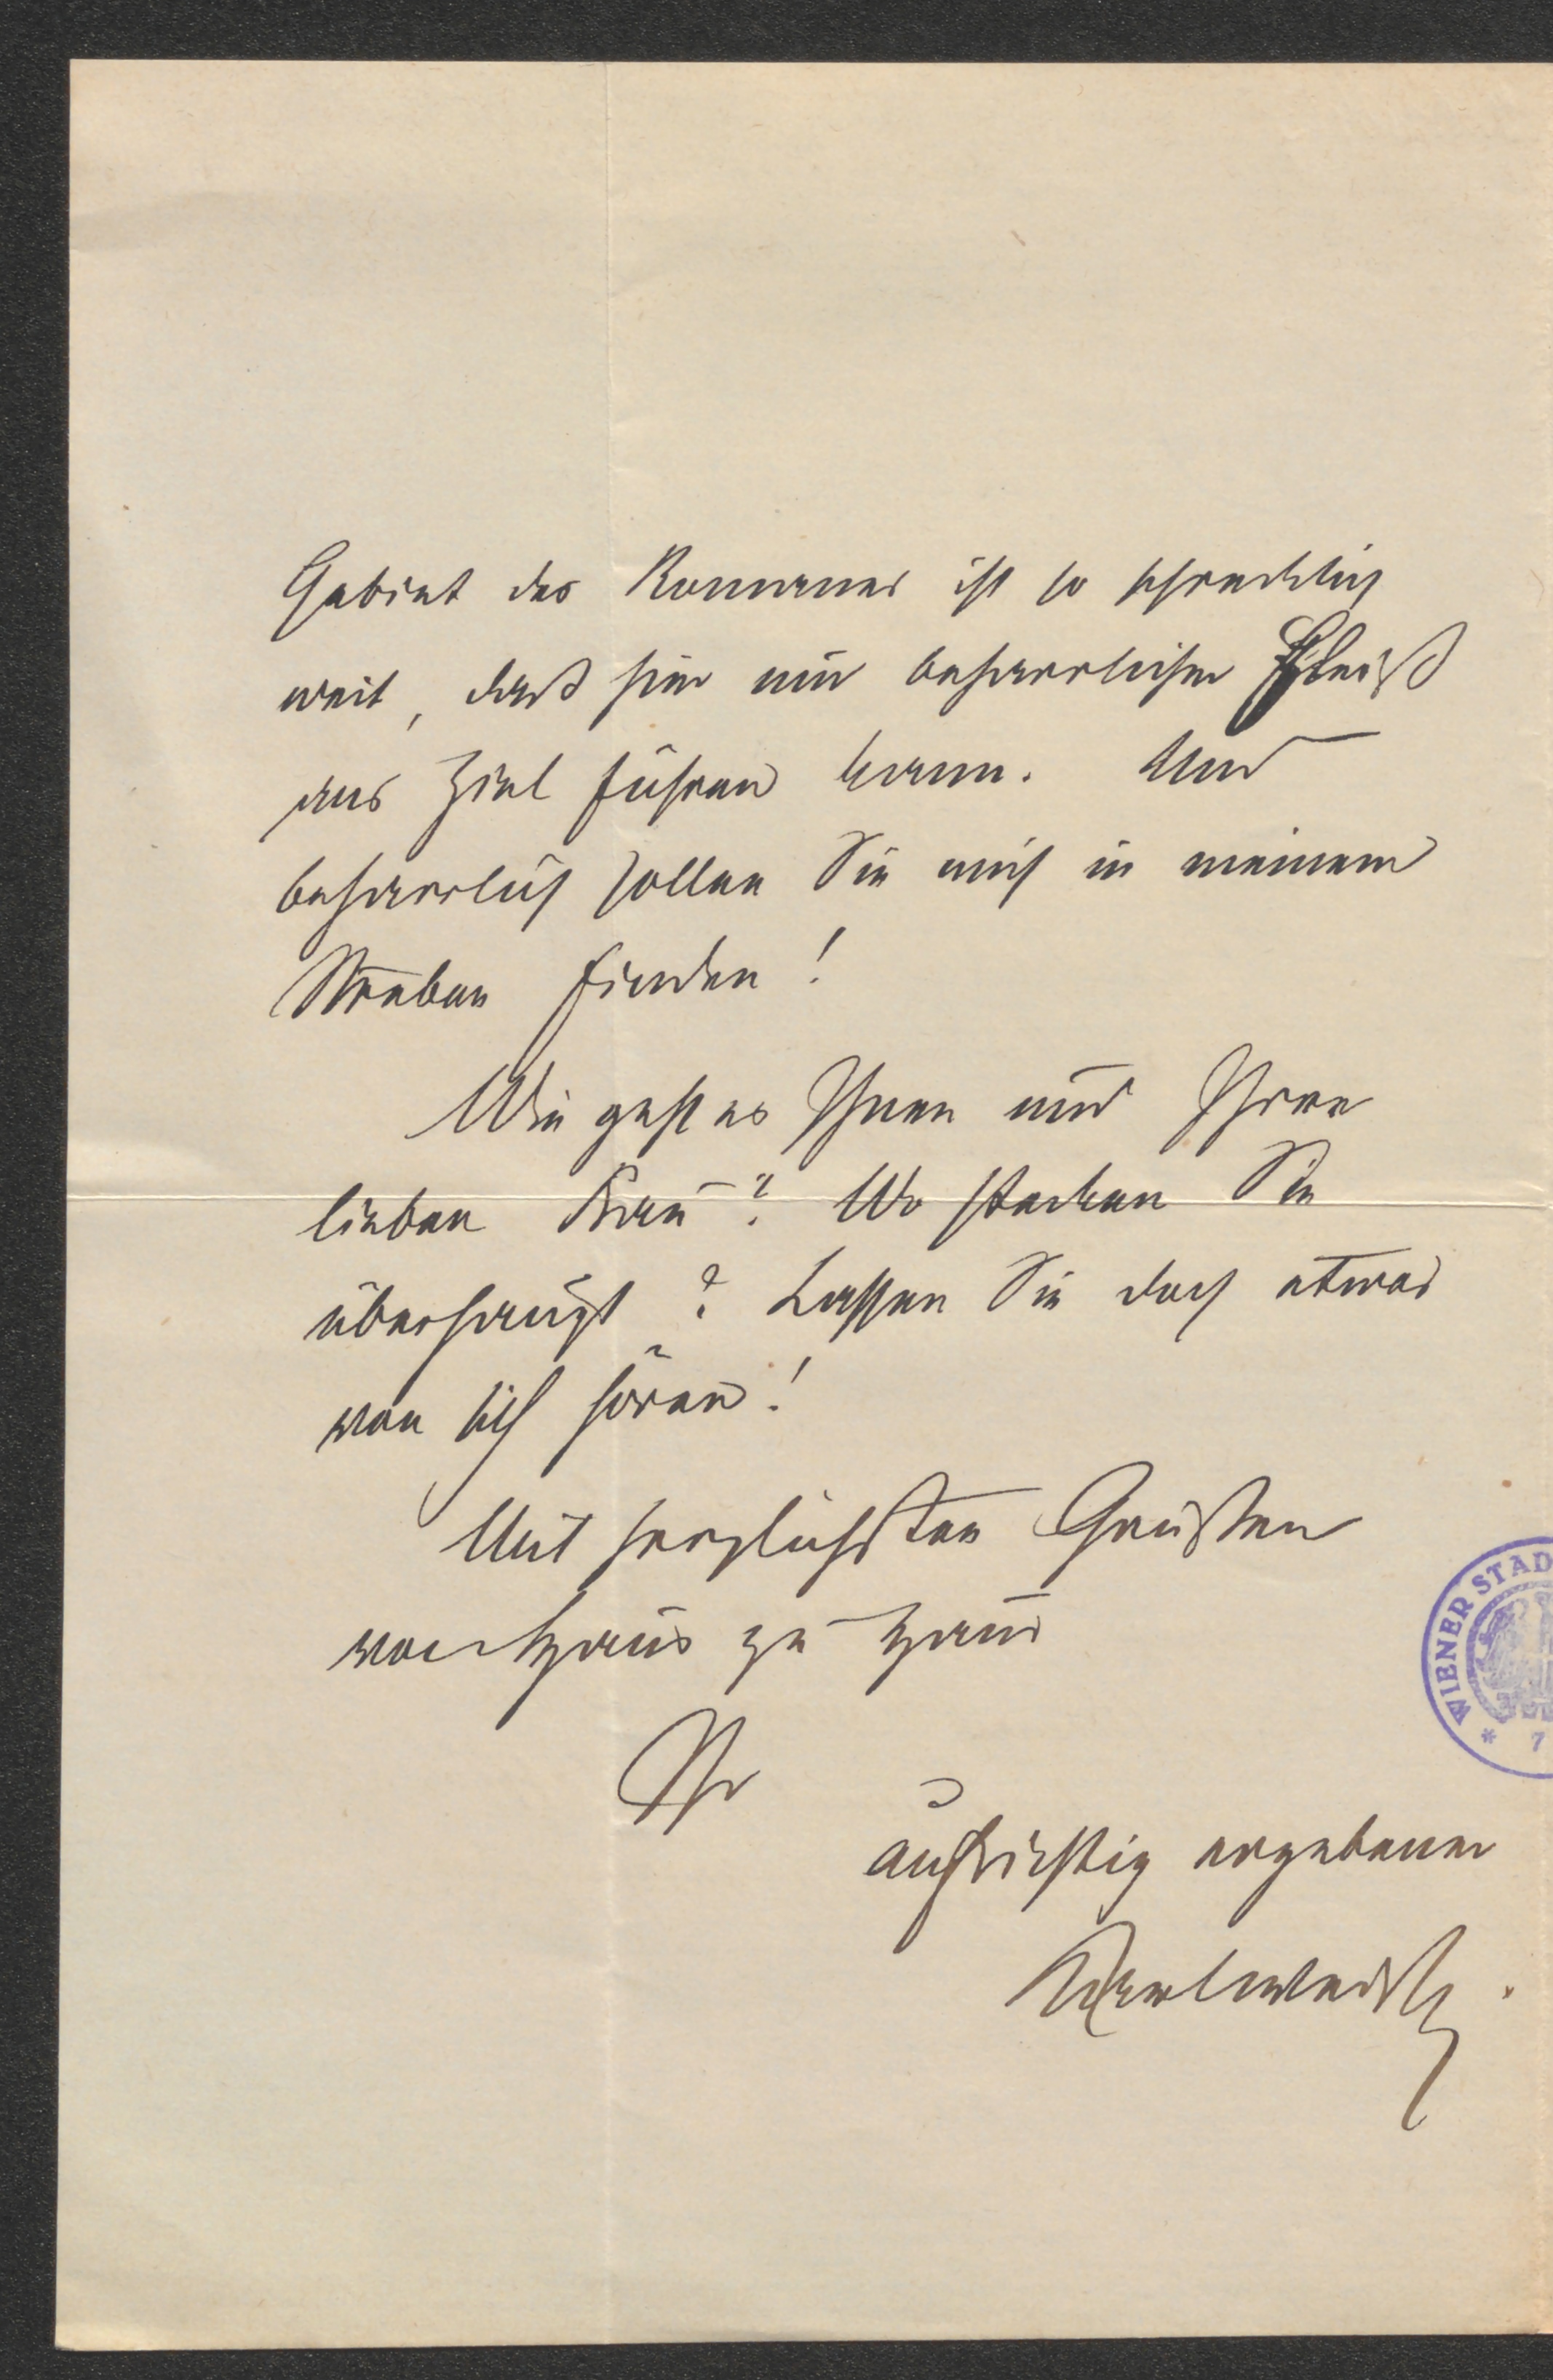 Gebiet des Romanes ist so schrecklich
weit, daß hier nur beharrlicher Fleiß
ans Ziel führen kann. Und
beharrlich sollen Sie mich in meinem
Streben finden!
Wie geht es Ihnen und Ihrer
lieben Frau? Wo stecken Sie
überhaupt? Lassen Sie doch etwas
von sich hören!
Mit herzlichsten Grüßen
von Haus zu Haus
Ihr
aufrichtig ergebener
Karlweis
WIENER STAD
* 7